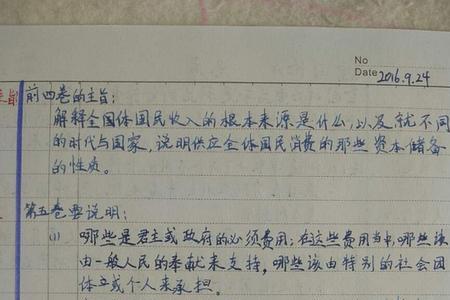 No
Date 2016.9.24
主旨
前四卷的主旨:
解释全国体国民收入的根本来源是什么,以及就不同
的时代与国家,说明供应全体国民消费的那些资本储备
的性质。
第五卷要说明:
(1) 哪些是君主或政府的必须费用;在这些费用当中,哪些该
由一般人民的奉献来支持,哪些该由特别的社会团
体立或个人来承担。